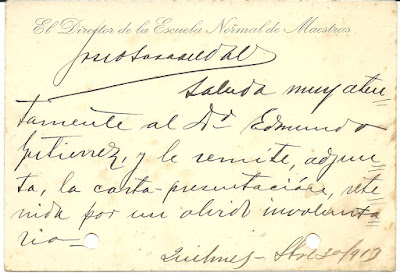 El Director de la Escuela Normal de Maestros
Saluda muy aten-
tamente al Dr. Edmundo
Gutierrez, y le remite, adjun
ta, la carta-presentación, rete
nida por un olvido involunta
rio—
Quilmes—